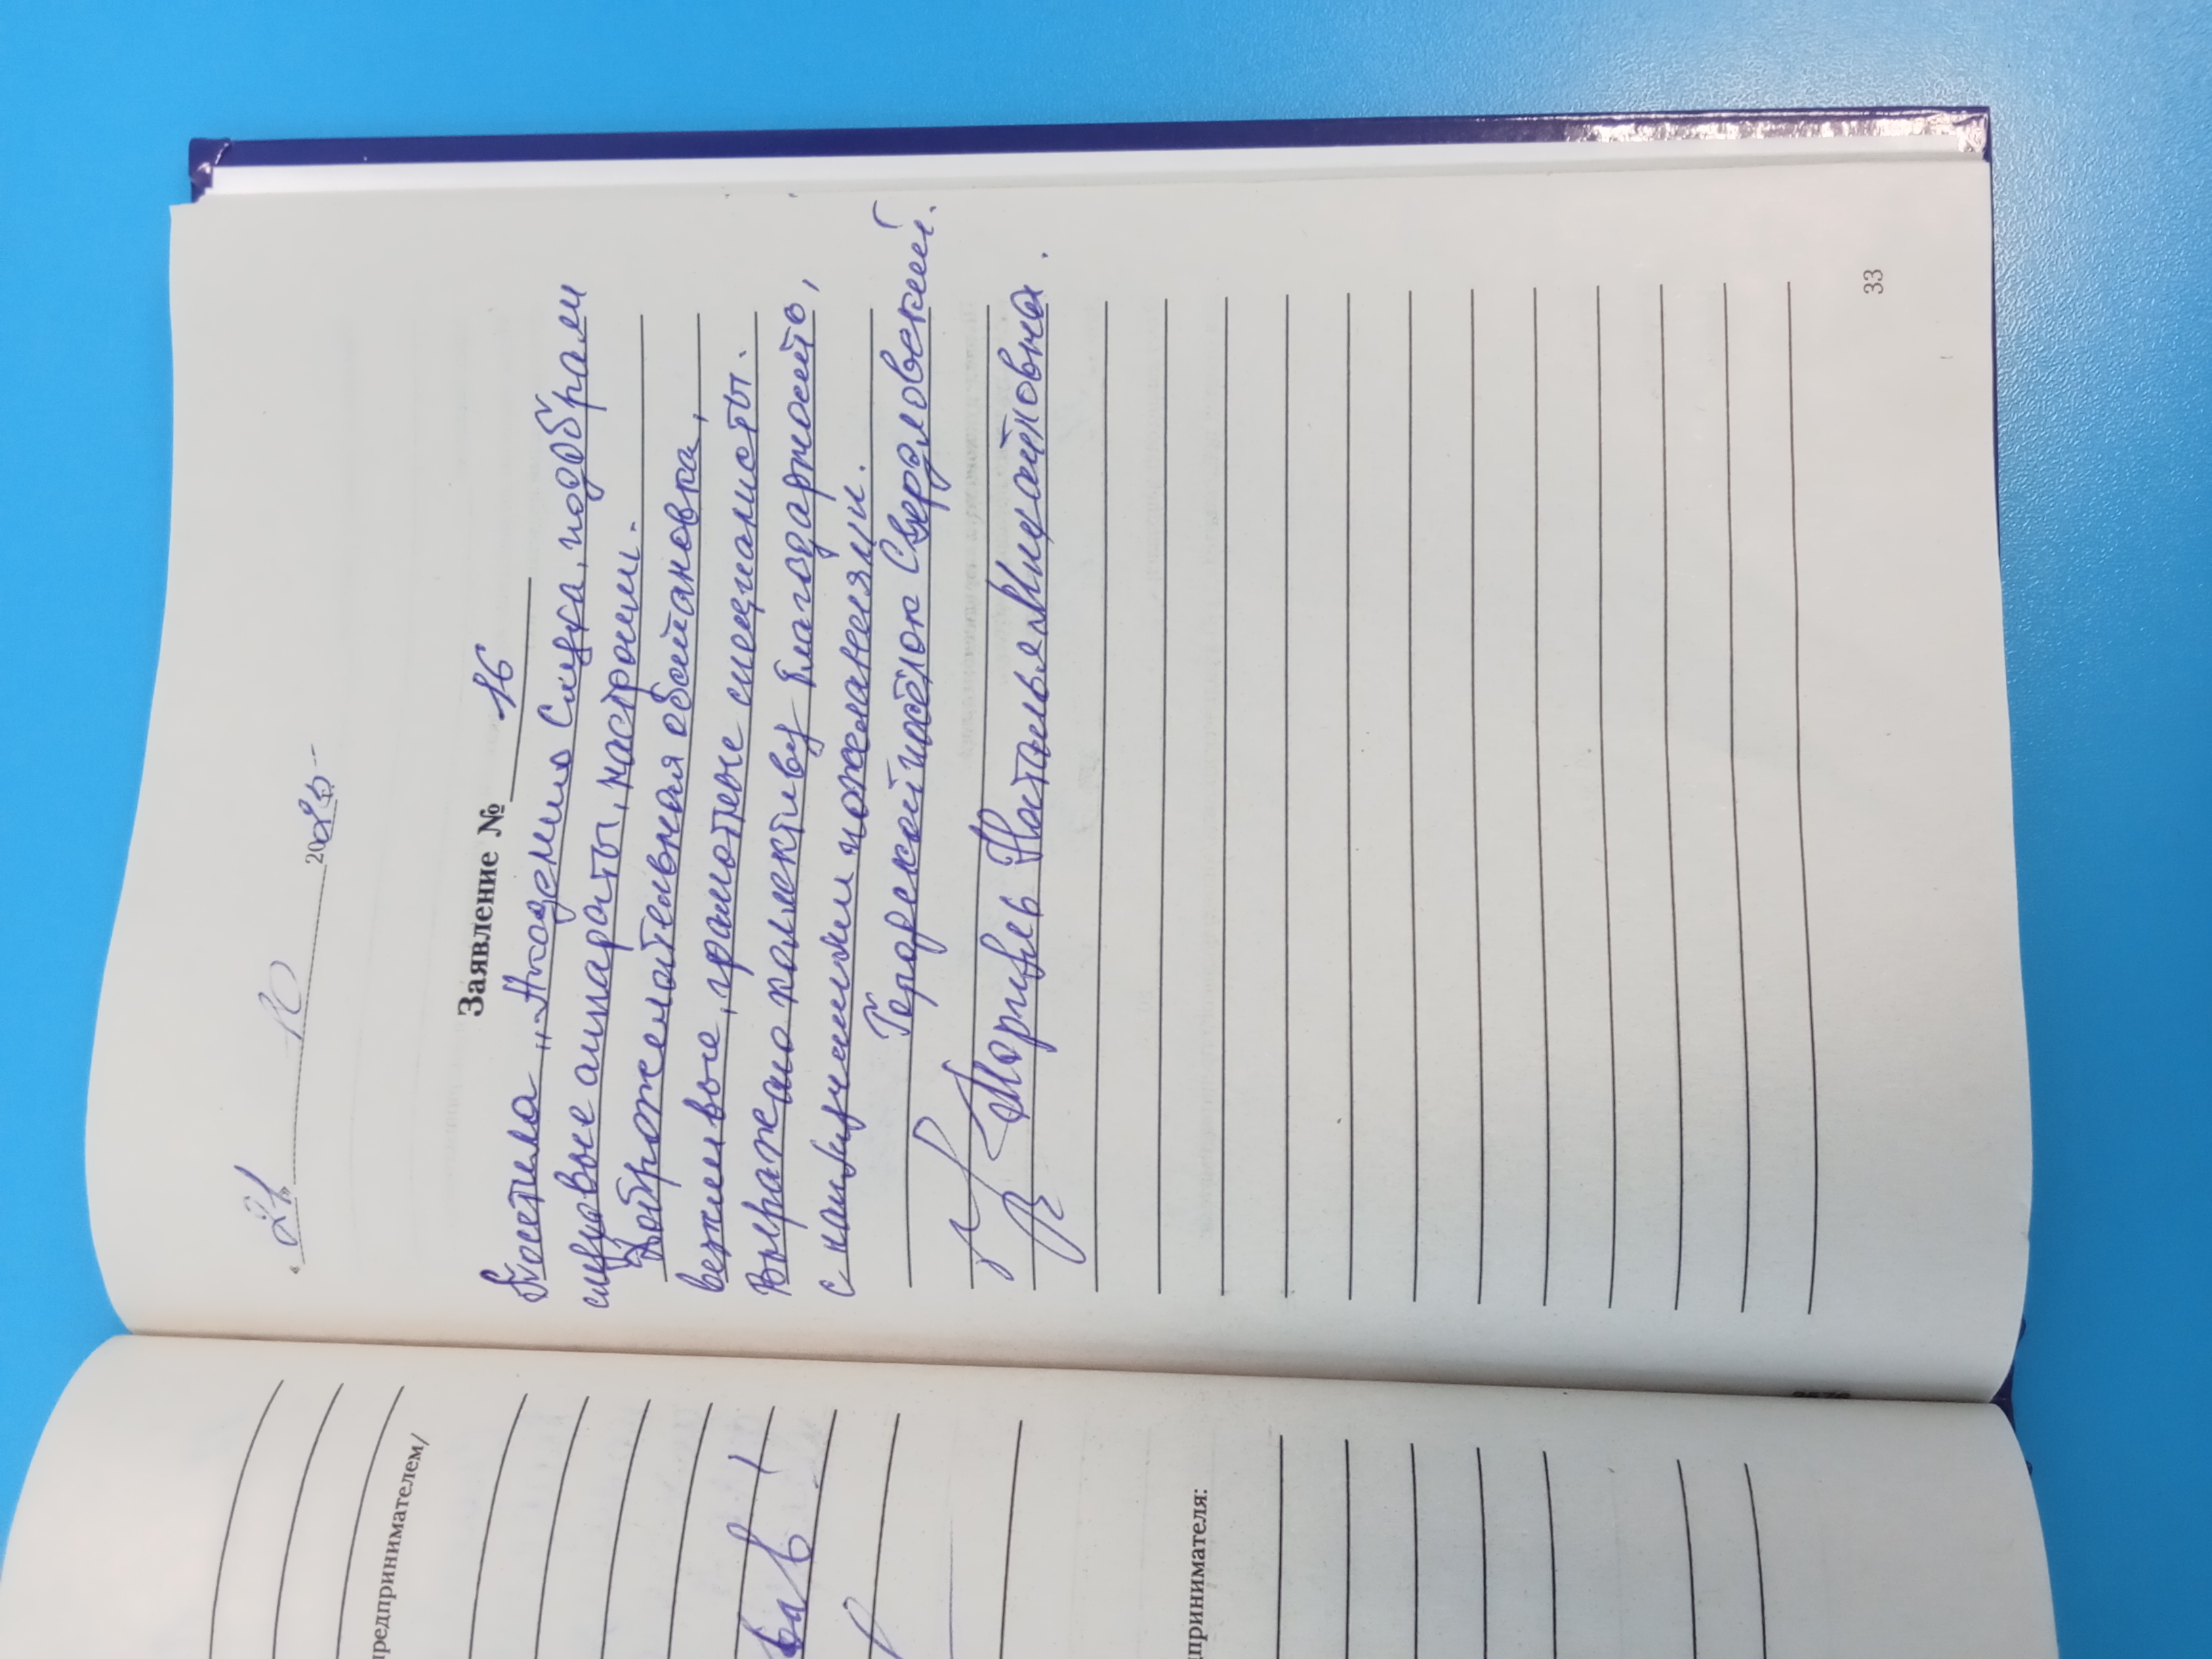 « 21 » 10 2025
Заявление № 16
Посетила "Академию Слуха, подобрали
слуховые аппараты, настроили.
Доброжелательная обстановка,
вежливые, грамотные специалисты.
Выражаю коллективу благодарность,
с наилучшими пожеланиями.
Городской посёлок Свердловский.
Наталья Михайловна.
33
предпринимателем/
дпринимателя: